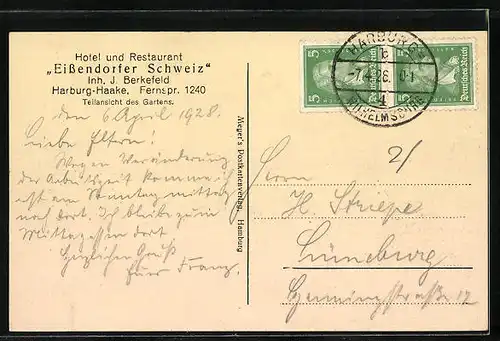 Hotel und Restaurant
„Eißendorfer Schweiz“
Inh. J. Berkefeld
Harburg-Haake, Fernspr. 1240
Teilansicht des Gartens.
den 6 April 1928.
Liebe Eltern!
Wegen Veränderung
der Arbeitszeit komme ich
erst am Sonntag mittag
nach dort. Ich bleibe zum
Mittagessen dort
Herzlichen Gruß
Euer Franz.
Meyer's Postkartenverlag, Hamburg
5 Deutsches Reich 5
5 Deutsches Reich 5
HARBURG
28
WILHELMSBURG
2/
Herrn
H. Striepe
Lüneburg